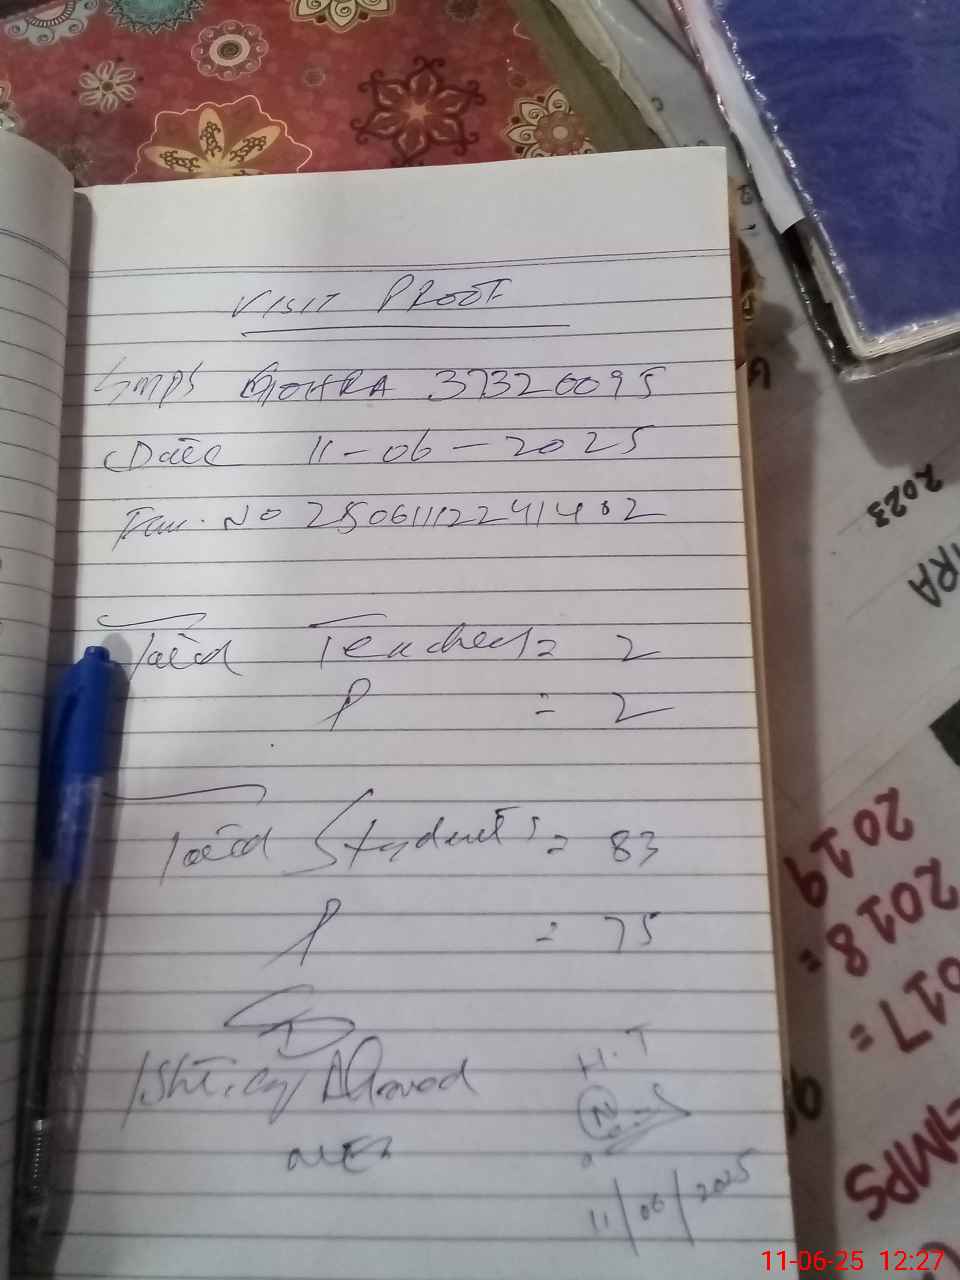 VISIT PROOF
GMPS GOHRA 37320095
Date 11-06-2025
Tran. No 250611122414102
Total Teachers = 2
P = 2
Total Students = 83
P = 75
Ishtiaq Ahmad
H.T
11/06/2025
2023
2019
2018=
017=
GMPS
11-06-25 12:27